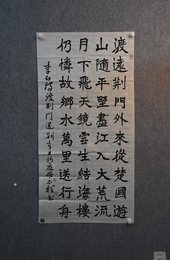 渡遠荆門外來從楚國遊
山隨平墅盡江入大荒流
月下飛天鏡雲生結海樓
仍憐故鄉水萬里送行舟
李白詩渡荆門送别